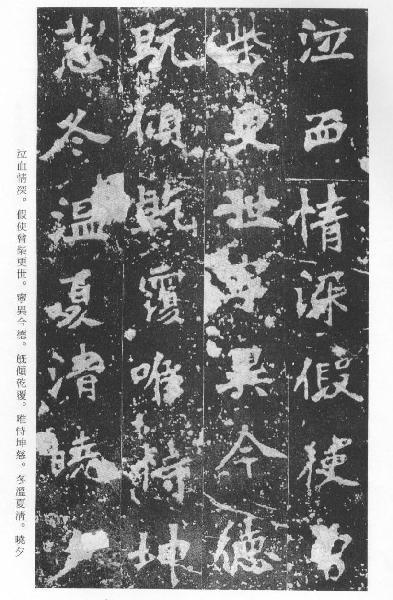 泣血情深假使曾
柴更世寧異今德
既傾乾覆唯恃坤
慈冬溫夏清曉夕
泣血情深。假使曾柴更世。寧異今德。旣傾乾覆。唯恃坤慈。冬溫夏清。曉夕